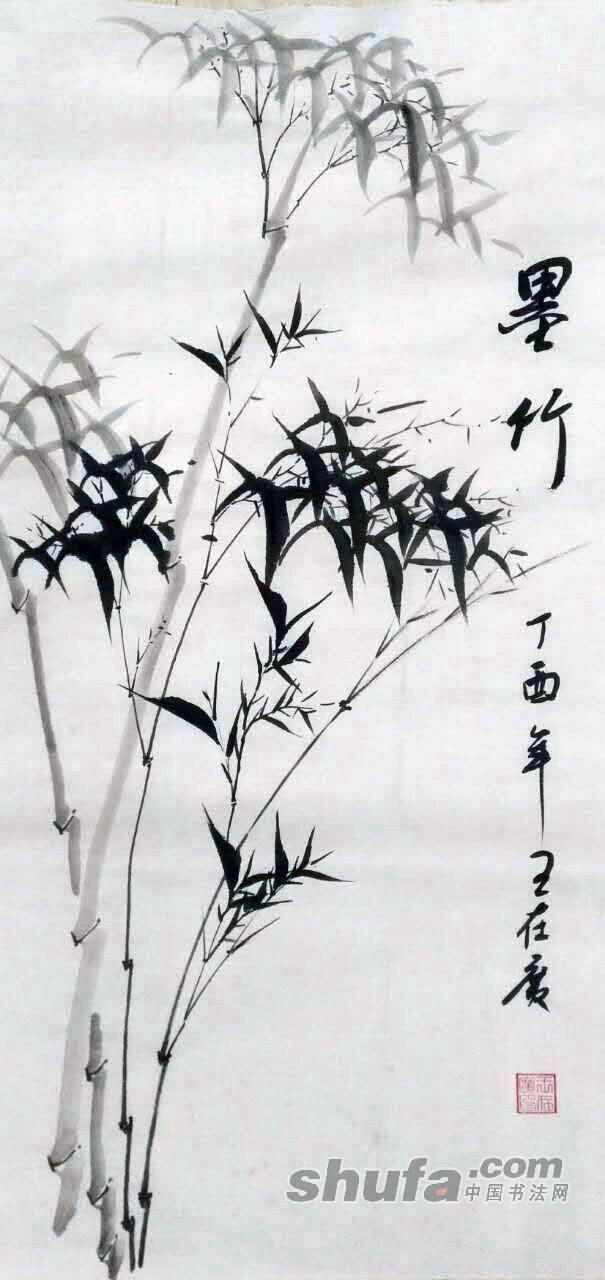 墨竹
丁酉年王在廣
shufa.com
中国书法网